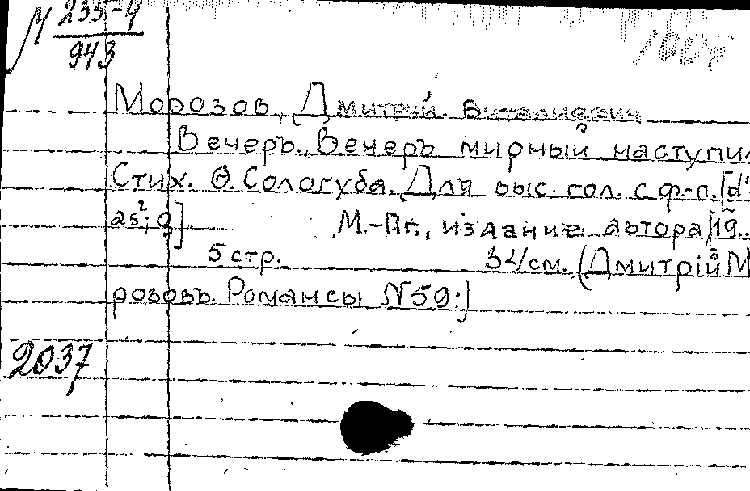 М 235-4
943
Морозов, Дмитрий Витальевич
Вечеръ. Вечеръ мирный наступил
Стих. Ѳ. Сологуба. Для выс. гол. с ф-п. [d'-
as²; g]          М.-Пг., издание автора, [19..
5 стр.          34 см. (Дмитрій Мо
розовъ. Романсы №59.]
2037